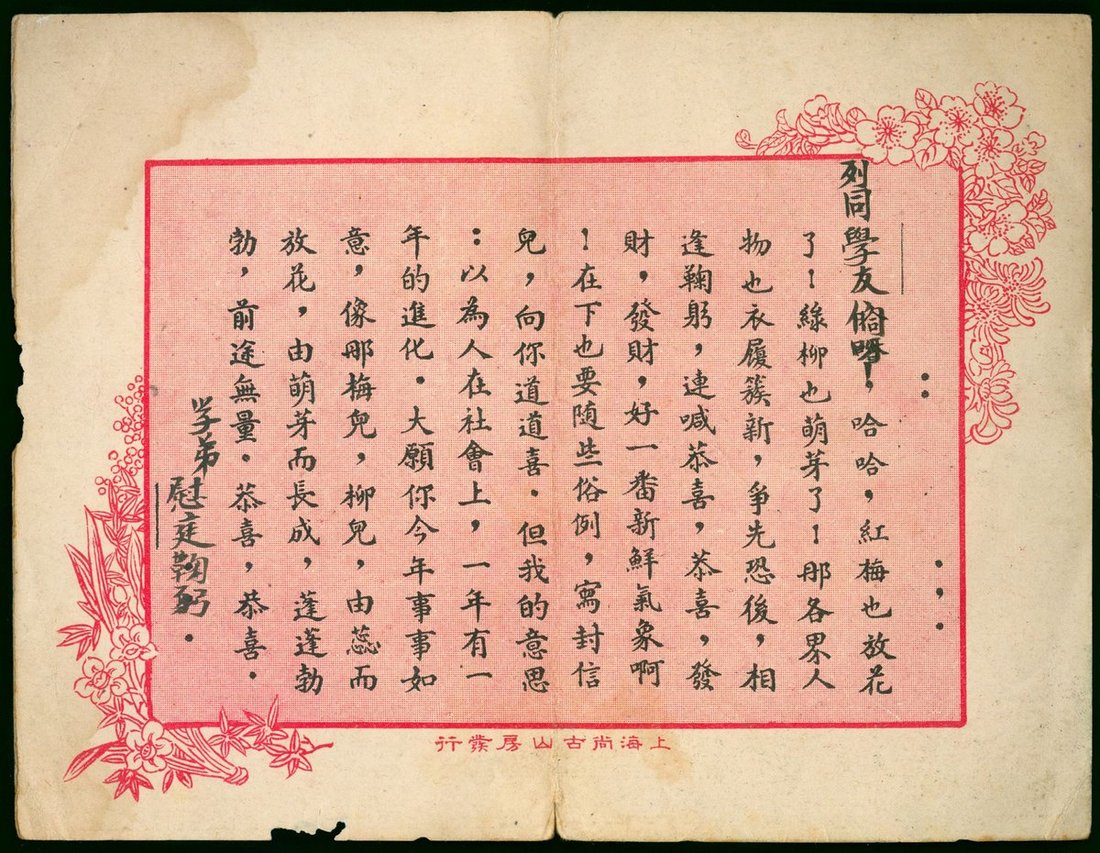 列同學友，哈哈，紅梅也放花
了！綠柳也萌芽了！那各界人
物也衣履簇新，爭先恐後，相
逢鞠躬，連喊恭喜，恭喜，發
財，發財，好一番新鮮氣象啊
！在下也要随些俗例，寫封信
兒，向你道道喜．但我的意思
：以為人在社會上，一年有一
年的進化．大願你今年事事如
意，像那梅兒，柳兒，由蕊而
放花，由萌芽而長成，蓬蓬勃
勃，前途無量．恭喜，恭喜．
学弟
慰庭鞠躬．
上海尚古山房發行